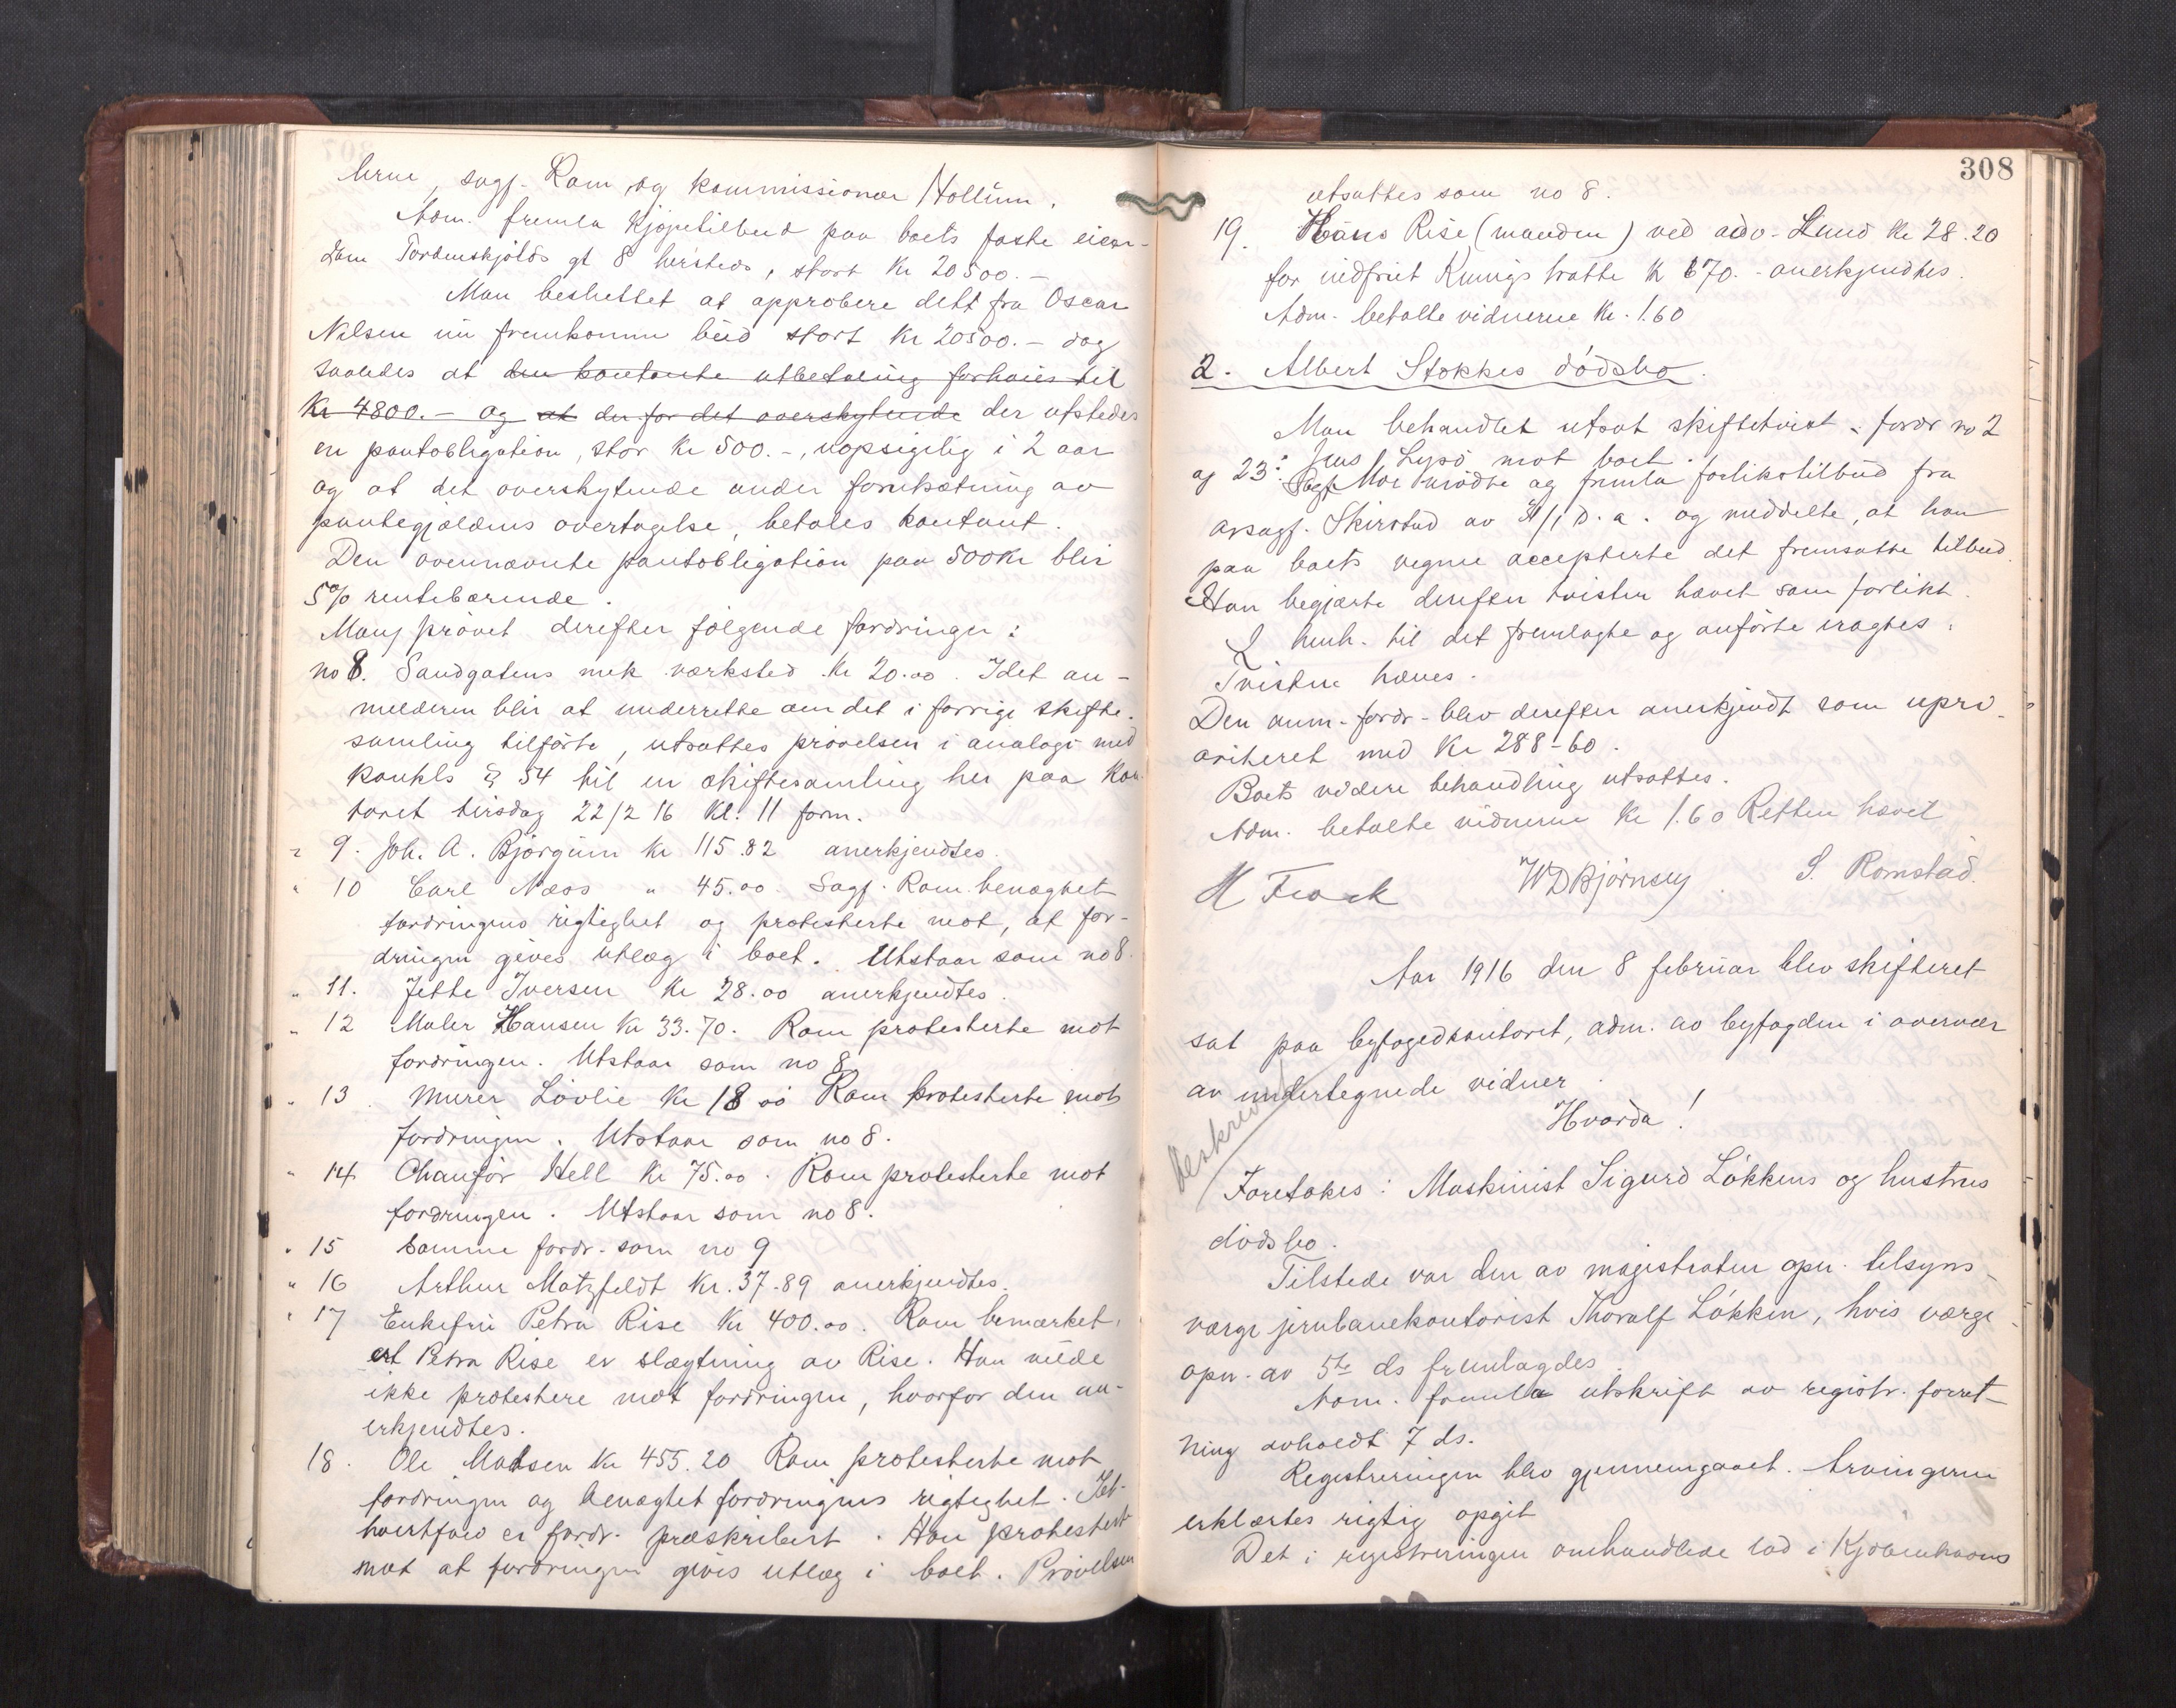 lerne, sagf. Ram og kommissionær Hollum.
Adm. fremla kjøpetilbud paa boets faste eien-
dom Tordenskjolds gt 8 hersteds, stort kr 20500.-
Man besluttet at approbere dett fra Oscar
Nilsen nu fremkomne bud stort kr 20500.- dog
saaledes at den kontante utbetaling forhøies til
Kr 4800.- og at der for det overskytende der utstedes
en pantobligation, stor kr 500.-, uopsigelig i 2 aar
og at det overskytende under forutsætning av
pantegjældens overtagelse, betales kontant.
Den ovennævnte pantobligation paa 500 kr blir
5% rentebærende.
Man prøvet derefter følgende fordringer:
no 8. Sandgatens mek værksted kr 20.00. Idet an-
melderen blir at underrette om det i forrige skifte-
samling tilførte, utsattes prøvelsen i analogi med
konkls § 54 til en skiftesamling her paa kon-
toret tirsdag 22/2 16 kl. 11 form.
" 9. Joh. A. Bjørgum kr 115.82 anerkjendtes.
" 10 Carl Næss " 45.00 Sagf. Ram benægtet
fordringens rigtighet og protesterte mot, at for-
dringen gives utlæg i boet. Utstaar som no 8.
" 11. Jette Iversen kr 28.00 anerkjendtes.
" 12 Maler Hansen kr 33.70. Ram protesterte mot
fordringen. Utstaar som no 8
" 13. Murer Løvlie kr 18.00 Ram protesterte mot
fordringen. Utstaar som no 8.
" 14 Chaufør Hell kr 75.00. Ram protesterte mot
fordringen. Utstaar som no 8.
" 15 Samme fordr. som no 9
" 16 Arthur Matzfeldt kr. 37.89 anerkjendtes.
" 17 Enkefru Petra Rise kr 400.00. Ram bemærket,
at Petra Rise er slægtning av Rise. Han vilde
ikke protestere mot fordringen, hvorfor den an-
erkjendtes.
18. Ole Madsen kr 455.20 Ram protesterte mot
fordringen og benægtet fordringens rigtighet. Iet-
hvertfald er fordr. præskribert. Han protesterte
mot at fordringen gives utlæg i boet. Prøvelsen
308
utsattes som no 8.
19. Hans Rise (manden) ved adv. Lund kr 28.20
for indfriet kr 670.- anerkjendtes.
Adm. betalte vidnerne kr. 1.60
2. Albert Stokkes dødsbo.
Man behandlet utsat skiftetvist - fordr no 2
og 23: Jens Lysø mot boet.
Sagf. Moe mødte og fremla forlikstilbud fra
orsagf. Skirstad av d.a. og meddelte, at han
paa boets vegne accepterte det fremsatte tilbud
Han begjærte derefter tvisten hævet som forlikt.
I henh. til det fremlagte og anførte eragtes:
Tvisten hæves.
Den anm. fordr. blev derefter anerkjendt som upri-
oriteret med kr 288-60.
Boets videre behandling utsattes.
Adm. betalte vidnerne kr 1.60 Retten hævet
M Frack WD Bjørnsen S. Romstad.
Aar 1916 den 8 februar blev skifteret
sat paa byfogedkontoret, adm. av byfogden i overvær
av undertegnede vidner.
Hvorda!
beskrevet
Foretokes: Maskinist Sigurd Løkkens og hustrus
dødsbo.
Tilstede var den av magistraten opn. tilsyns-
værge jernbanekontorist Thoralf Løkken, hvis værge-
opn. av 5te ds fremlagdes.
Adm. fremla utskrift av registr. forret-
ning avholdt 7 ds.
Registreringen blev gjennemgaaet. Arvingerne
erklærtes rigtig opgit
Det i registreringen omhandlede lod i Kjøbenhavns